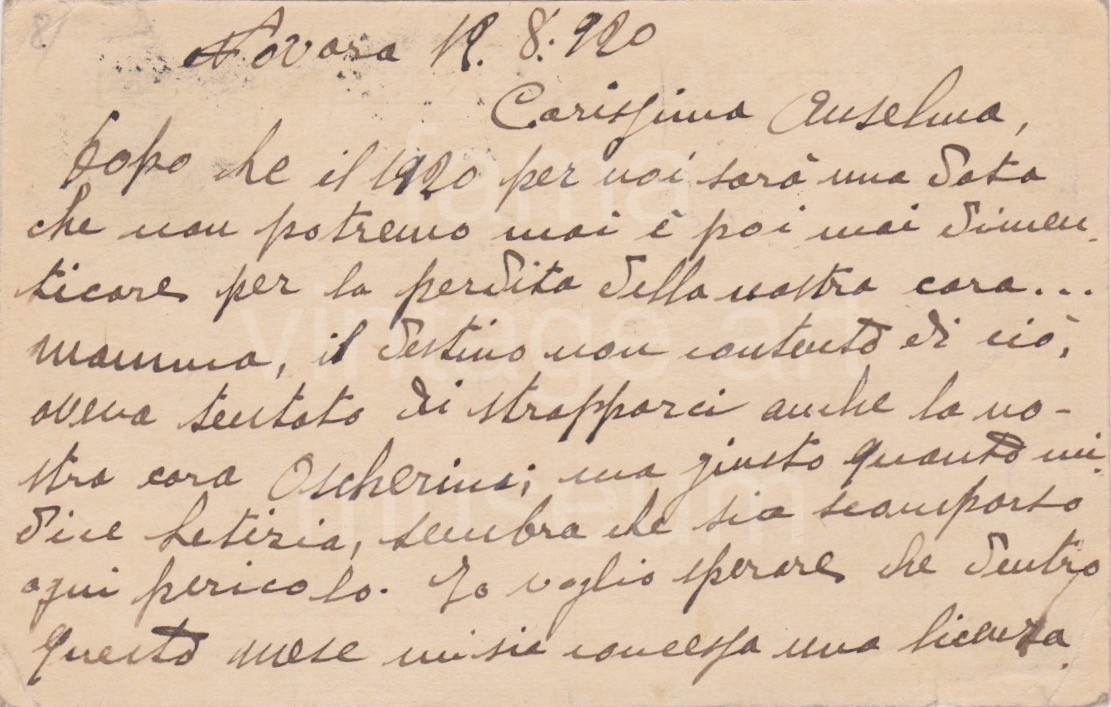 Novara 12. 8. 920
Carissima Anselma,
Dopo che il 1920 per noi sarà una data
che non potremo mai è poi mai dimen-
ticare per la perdita della nostra cara...
mamma, il destino non contento di ciò,
aveva tentato di strapparci anche la no-
stra cara Oscherina; ma giusto quanto mi
dice Letizia, sembra che sia scomparso
ogni pericolo. Io voglio sperare che dentro
questo mese mi sia concessa una licenza.
fama
vintage art
museum